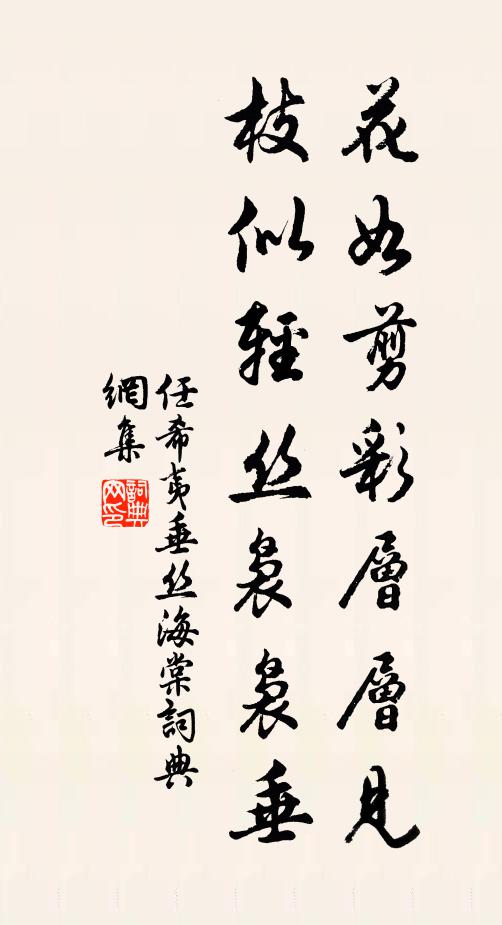 花如剪彩層層見
枝似輕丝裊裊垂
任希夷垂丝海棠詞典
網集
詞典
网印